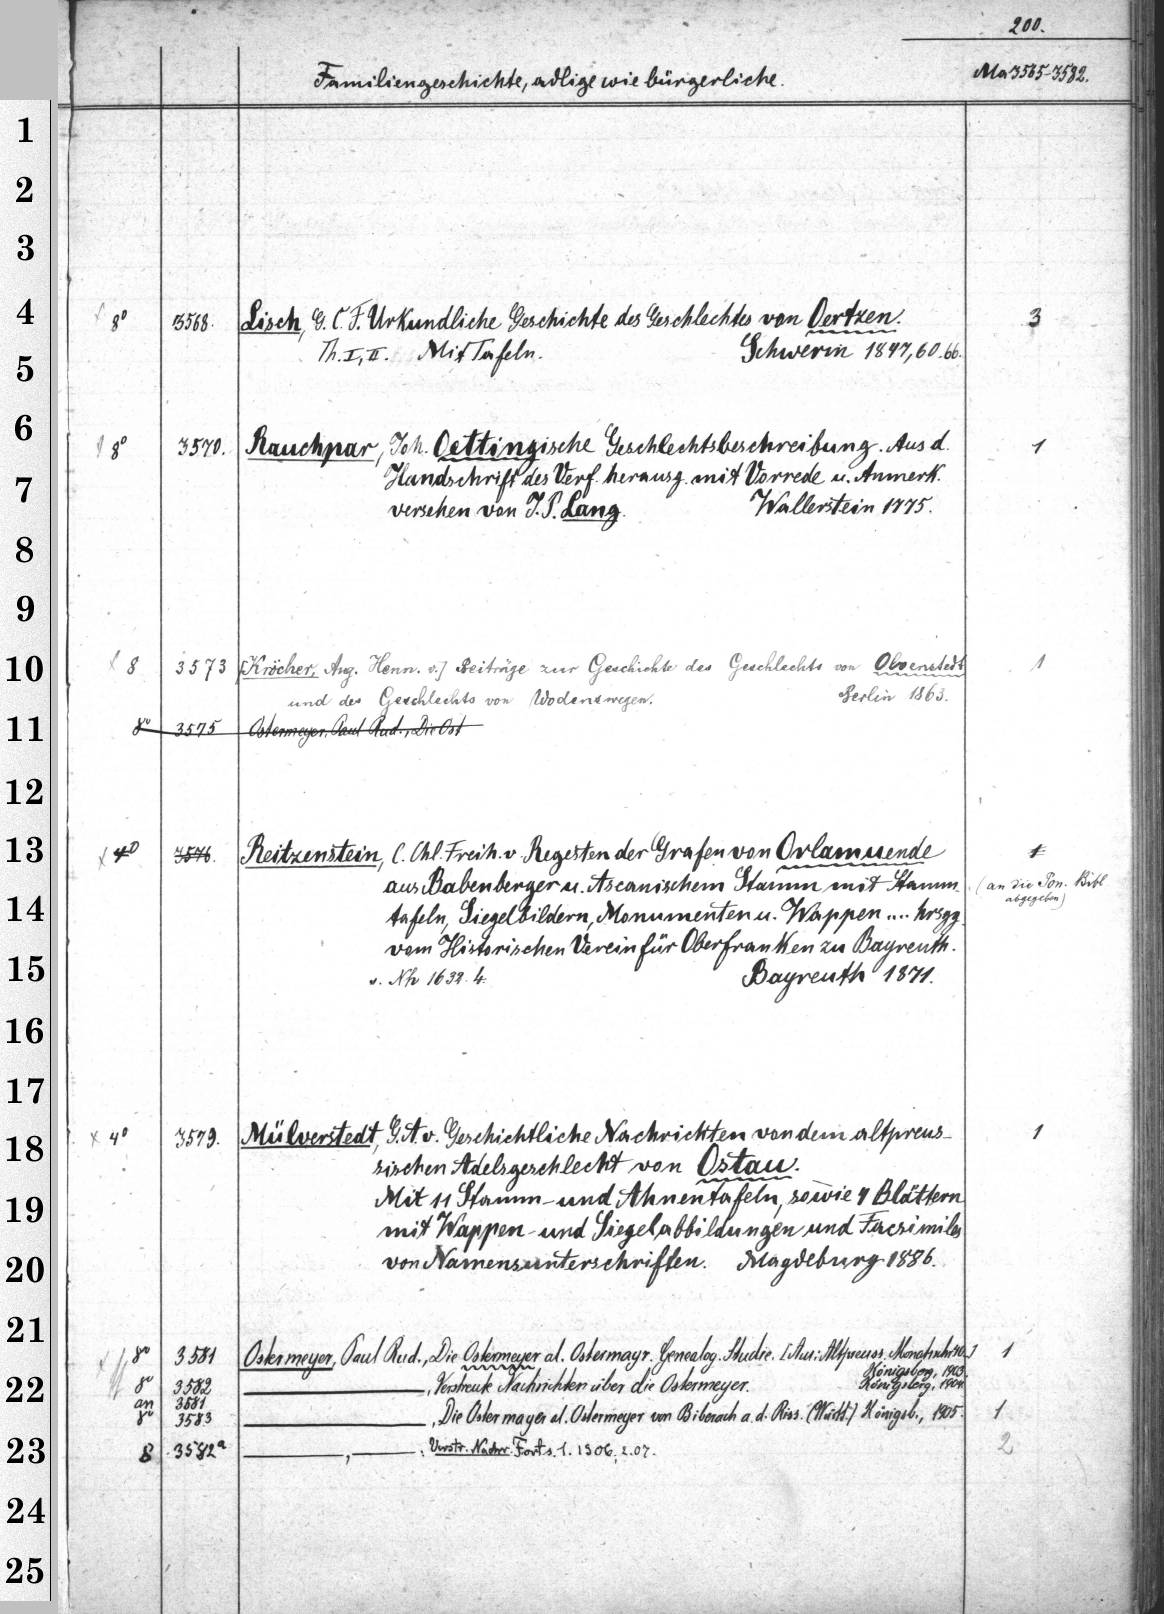 200.
Familiengeschichte, adlige wie bürgerliche.
Ma 3565-3582.
1
2
3
4
8° 3568. Lisch, G. C. F. Urkundliche Geschichte des Geschlechtes von Oertzen. 3
Th. I, II. Mit Tafeln. Schwerin 1847, 60. 66.
5
6
8° 3570. Rauchpar, Joh. Oettingische Geschlechtsbeschreibung. Aus d. 1
7
Handschrift des Verf. herausg. mit Vorrede u. Anmerk.
versehen von J. P. Lang. Wallerstein 1775.
8
9
10
8 3573 [Kröcher, Aug. Henn. v.] Beiträge zur Geschichte des Geschlechts von Olvenstedt 1
und des Geschlechts von Wodenswegen. Berlin 1863.
11
8° 3575 Ostermeyer, Paul Rud., Die Ost
12
13
4° 3576. Reitzenstein, C. Chl. Freih. v. Regesten der Grafen von Orlamuende 1
aus Babenberger u. Ascanischem Stamm mit Stamm- (an die Pon. Bibl
abgegeben)
14
tafeln, Siegelbildern, Monumenten u. Wappen .... hrsgg.
vom Historischen Verein für Oberfranken zu Bayreuth.
15
v. Nh 1632. 4. Bayreuth 1871.
16
17
18
x 4° 3579. Mülverstedt, G. A. v. Geschichtliche Nachrichten von dem altpreus- 1
sischen Adelsgeschlecht von Ostau.
19
Mit 11 Stamm- und Ahnentafeln, sowie 4 Blättern
mit Wappen- und Siegelabbildungen und Facsimiles
20
von Namensunterschriften. Magdeburg 1886.
21
8° 3581 Ostermeyer, Paul Rud., Die Ostermeyer al. Ostermayr. Genealog. Studie. [Aus: Altpreuss. Monatschr. 40.] 1
Königsberg, 1903.
22
8° 3582 ———, Verstreute Nachrichten über die Ostermeyer. Königsberg, 1904.
an 3581
8° 3583 ———, Die Ostermayer al. Ostermeyer von Biberach a. d. Riss. (Württ.) Königsb., 1905. 1
23
8 3582a ———, ———: Verstr. Nachr. Forts. 1. 1906, 2. 07. 2
24
25